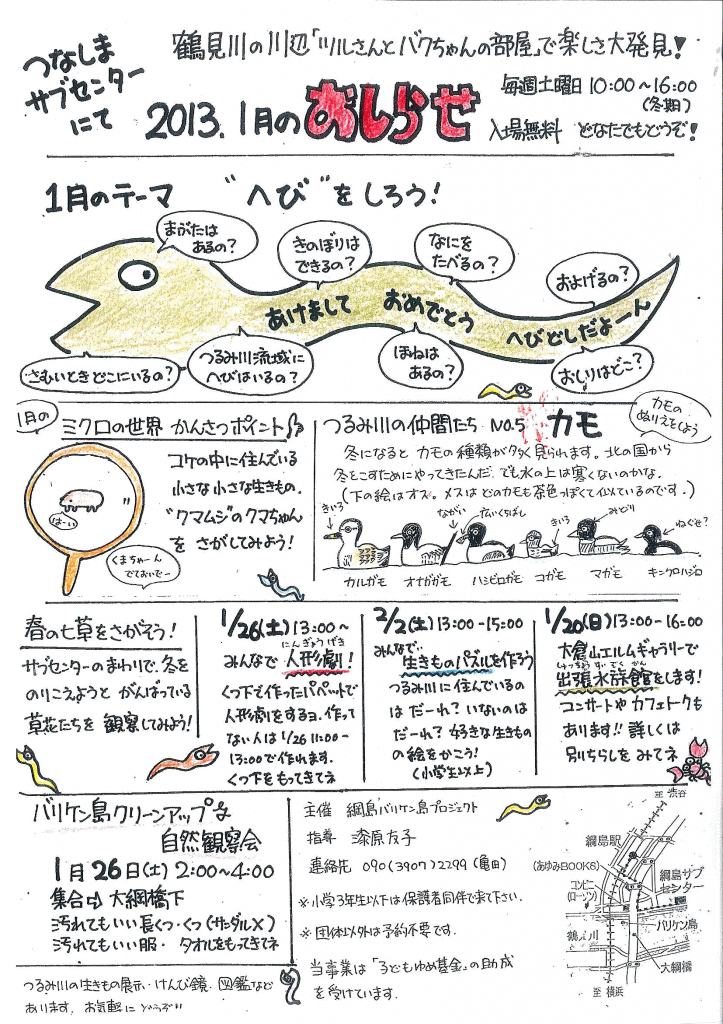 つなしま
サブセンター
にて
鶴見川の川辺「ツルさんとバクちゃんの部屋」で楽しさ大発見!
2013.1月の おしらせ
毎週土曜日 10:00〜16:00
(冬期)
入場無料 どなたでもどうぞ!
1月のテーマ “へび”をしろう!
まぶたは
あるの?
きのぼりは
できるの?
なにを
たべるの?
およげるの?
あけまして おめでとう へびどしだよーん
さむいときどこにいるの?
つるみ川流域に
へびはいるの?
ほねは
あるの?
おしりはどこ?
1月の
ミクロの世界 かんさつポイント
コケの中に住んでいる
小さな小さな生きもの.
“クマムシ”のクマちゃん
を さがしてみよう!
はーい
くまちゃーん
でておいでー
つるみ川の仲間たち No.5 カモ
カモの
ぬりえをしよう
冬になると カモの種類が多く見られます。北の国から
冬をこすためにやってきたんだ. でも水の上は寒くないのかな。
(下の絵はオス。メスはどのカモも茶色っぽくて似ているのです.)
きいろ
ながい
ひらたいくちばし
きいろ
みどり
ねぐせ?
カルガモ オナガガモ ハシビロガモ コガモ マガモ キンクロハジロ
春の七草をさがそう!
サブセンターのまわりで、冬を
のりこえようと がんばっている
草花たちを 観察してみよう!
1/26(土)13:00〜
みんなで 人形劇!
にんぎょうげき
くつ下で作ったパペットで
人形劇をするヨ. 作って
ない人は1/26 11:00-
13:00で作れます.
くつ下をもってきてネ
2/2(土)13:00-15:00
みんなで
生きものパズルを作ろう
つるみ川に住んでいるの
はだーれ? いないのは
だーれ? 好きな生きもの
の絵をかこう!
(小学生以上)
1/20(日)13:00-16:00
大倉山エルムギャラリーで
しゅっちょうすいぞくかん
出張水族館をします!
コンサートやカフェトークも
あります!! 詳しくは
別ちらしをみてネ
バリケン島クリーンアップ&
自然観察会
1月26日(土)2:00〜4:00
集合⇨大綱橋下
汚れてもいい長くつ・くつ(サンダル×)
汚れてもいい服・タオルをもってきてネ
つるみ川の生きもの展示・けんび鏡・図鑑など
あります. お気軽にどうぞ!!
主催 綱島バリケン島プロジェクト
指導 漆原友子
連絡先 090(3907)2299(亀田)
※小学3年生以下は保護者同伴で来て下さい.
※団体以外は予約不要です.
当事業は「子どもゆめ基金」の助成
を受けています.
至 渋谷
綱島駅
(あゆみBOOKS)
コンビニ
(ローソン)
綱島サブ
センター
鶴見川
バリケン島
大綱橋
至 横浜